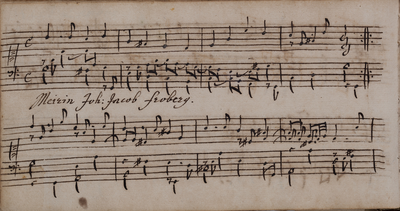 Meirin Joh: Jacob froberg.